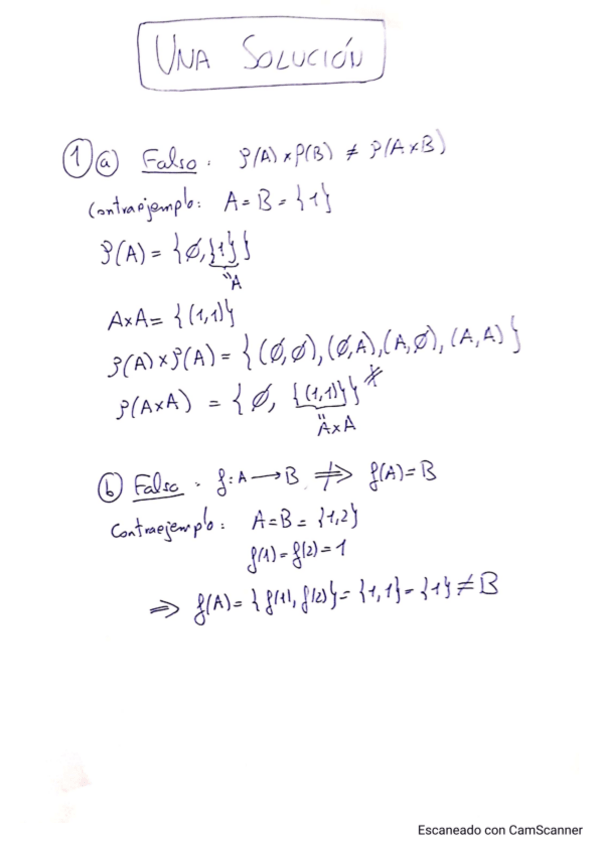 UNA SOLUCIÓN
1 a Falso. P(A) x P(B) ≠ P(A x B)
Contraejemplo: A = B = {1}
P(A) = {Ø, {1}}
"A
AxA = {(1,1)}
P(A) x P(A) = {(Ø,Ø), (Ø,A), (A,Ø), (A,A)}
P(AxA) = {Ø, {(1,1)}} ≠
"AxA
b Falso. f: A → B ⇏ f(A) = B
Contraejemplo: A = B = {1,2}
f(1) = f(2) = 1
⇒ f(A) = {f(1), f(2)} = {1,1} = {1} ≠ B
Escaneado con CamScanner